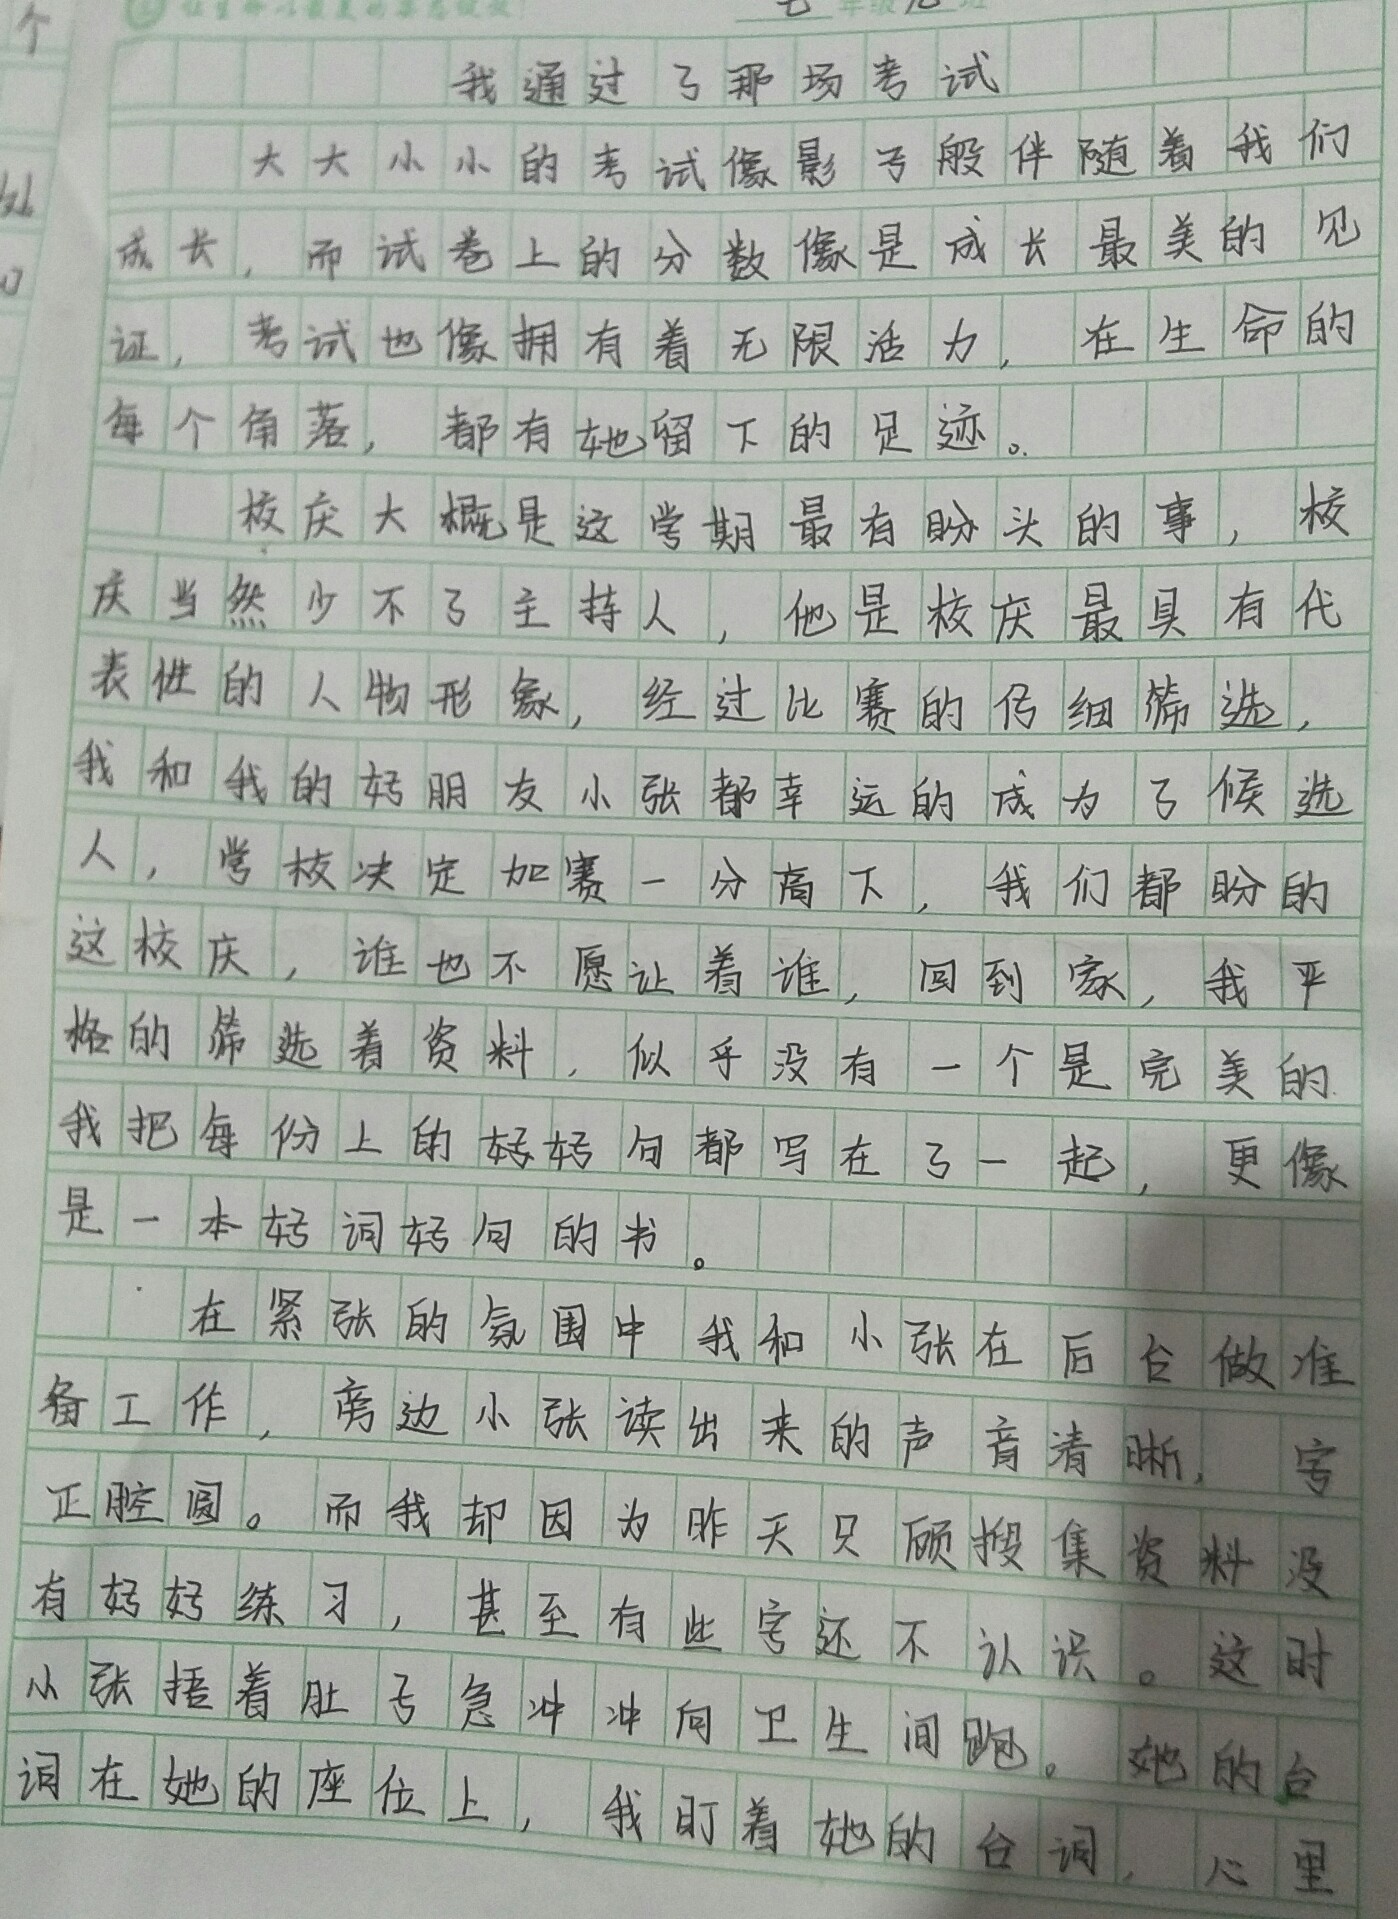 让生命以最美的姿态绽放!
七年级九班
我通过了那场考试
大大小小的考试像影子般伴随着我们
成长，而试卷上的分数像是成长最美的见
证，考试也像拥有着无限活力，在生命的
每个角落，都有她留下的足迹。
校庆大概是这学期最有盼头的事，校
庆当然少不了主持人，他是校庆最具有代
表性的人物形象，经过比赛的仔细筛选，
我和我的好朋友小张都幸运的成为了候选
人，学校决定加赛一分高下，我们都盼的
这校庆，谁也不愿让着谁，回到家，我严
格的筛选着资料，似乎没有一个是完美的.
我把每份上的好好句都写在了一起，更像
是一本好词好句的书。
在紧张的氛围中我和小张在后台做准
备工作，旁边小张读出来的声音清晰，字
正腔圆。而我却因为昨天只顾搜集资料没
有好好练习，甚至有些字还不认识。这时
小张捂着肚子急冲冲向卫生间跑。她的台
词在她的座位上，我盯着她的台词，心里
个